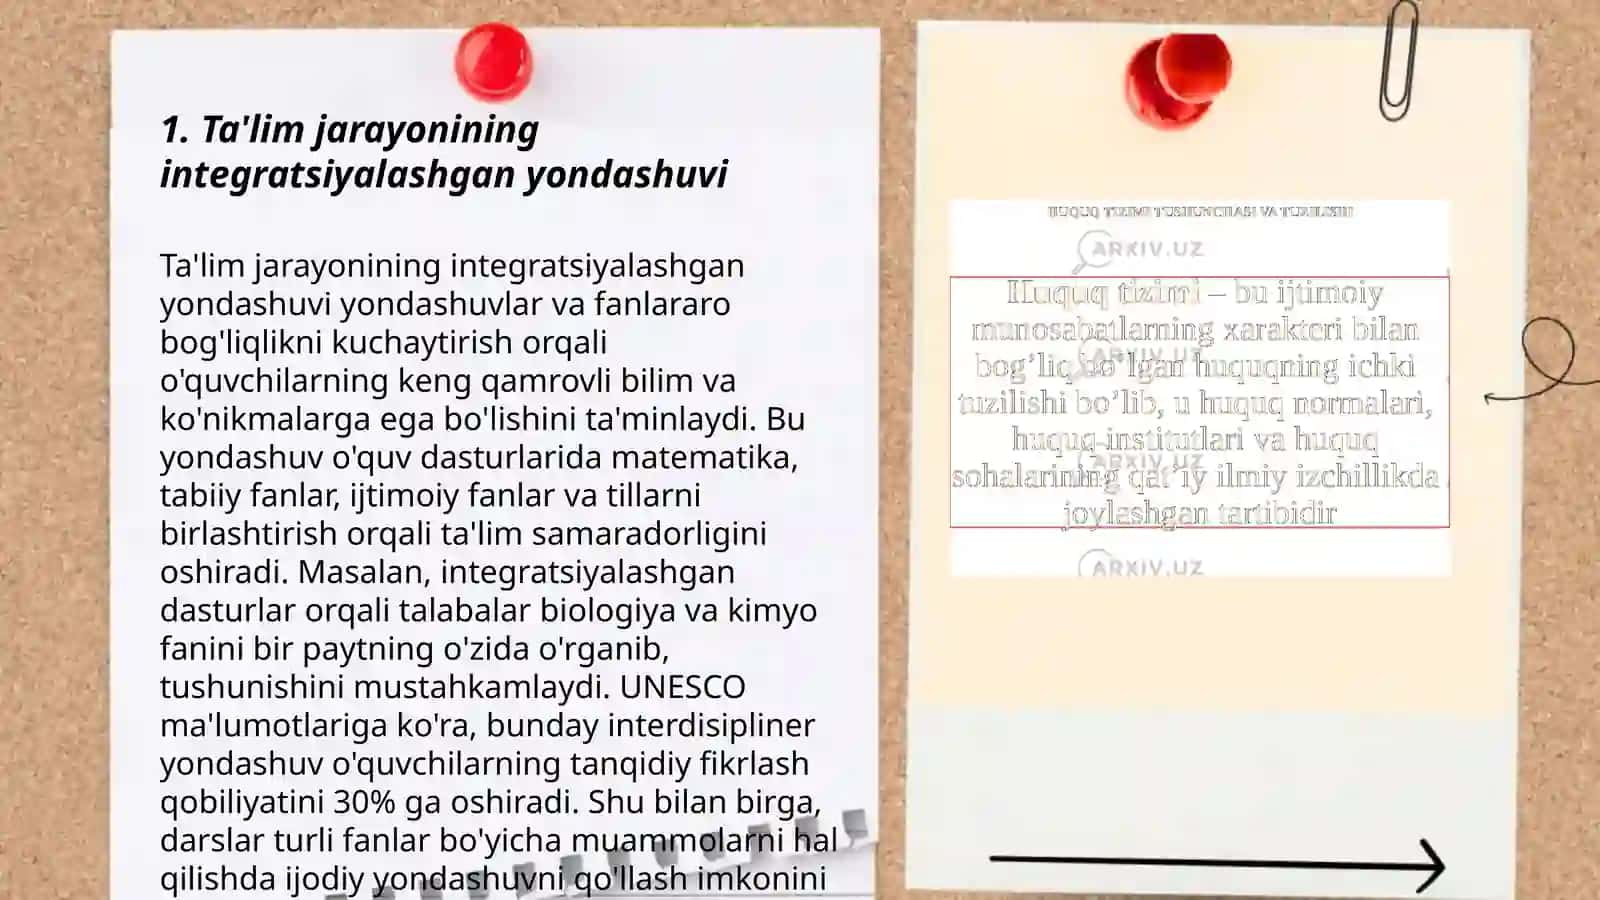 1. Ta'lim jarayonining
integratsiyalashgan yondashuvi
Ta'lim jarayonining integratsiyalashgan
yondashuvi yondashuvlar va fanlararo
bog'liqlikni kuchaytirish orqali
o'quvchilarning keng qamrovli bilim va
ko'nikmalarga ega bo'lishini ta'minlaydi. Bu
yondashuv o'quv dasturlarida matematika,
tabiiy fanlar, ijtimoiy fanlar va tillarni
birlashtirish orqali ta'lim samaradorligini
oshiradi. Masalan, integratsiyalashgan
dasturlar orqali talabalar biologiya va kimyo
fanini bir paytning o'zida o'rganib,
tushunishini mustahkamlaydi. UNESCO
ma'lumotlariga ko'ra, bunday interdisipliner
yondashuv o'quvchilarning tanqidiy fikrlash
qobiliyatini 30% ga oshiradi. Shu bilan birga,
darslar turli fanlar bo'yicha muammolarni hal
qilishda ijodiy yondashuvni qo'llash imkonini
HUQUQ TIZIMI TUSHUNCHASI VA TUZILISHI
ARXIV.UZ
Huquq tizimi – bu ijtimoiy
munosabatlarning xarakteri bilan
bog’liq bo’lgan huquqning ichki
tuzilishi bo’lib, u huquq normalari,
huquq institutlari va huquq
sohalarining qat’iy ilmiy izchillikda
joylashgan tartibidir
ARXIV.UZ
ARXIV.UZ
ARXIV.UZ